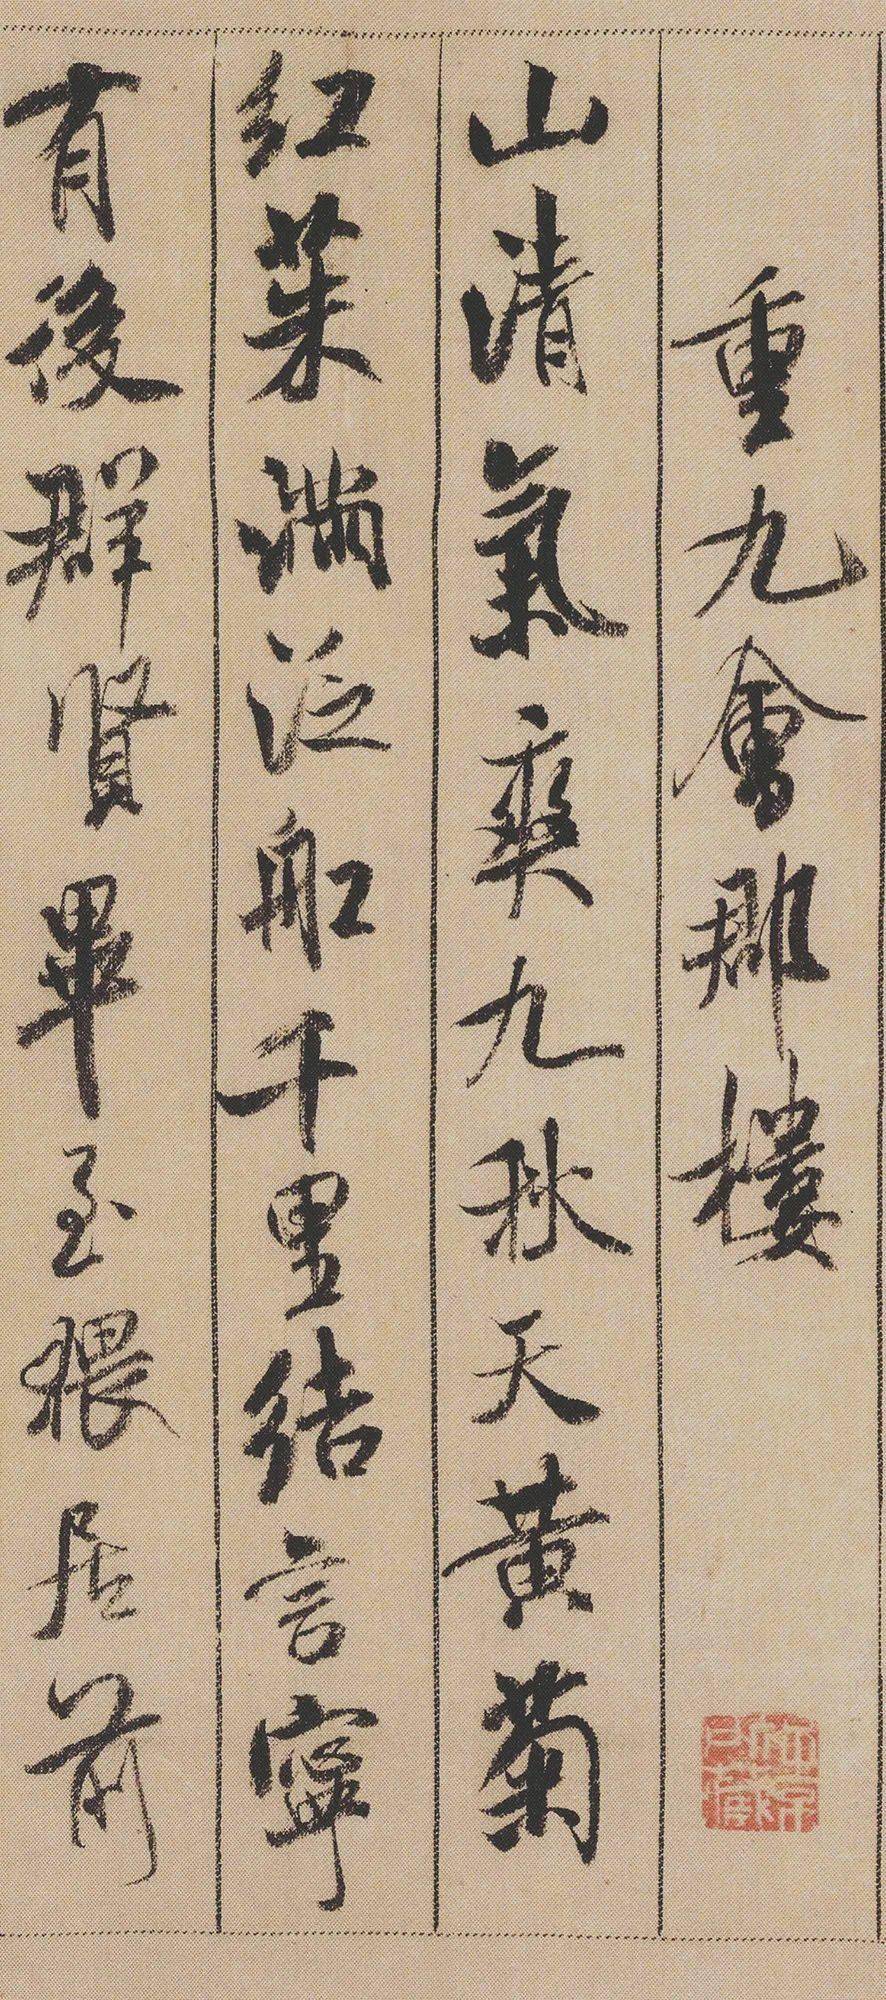 重九會郡樓
山清氣爽九秋天黃菊
紅茱滿泛船千里結言寧
有後群賢畢至猥居前